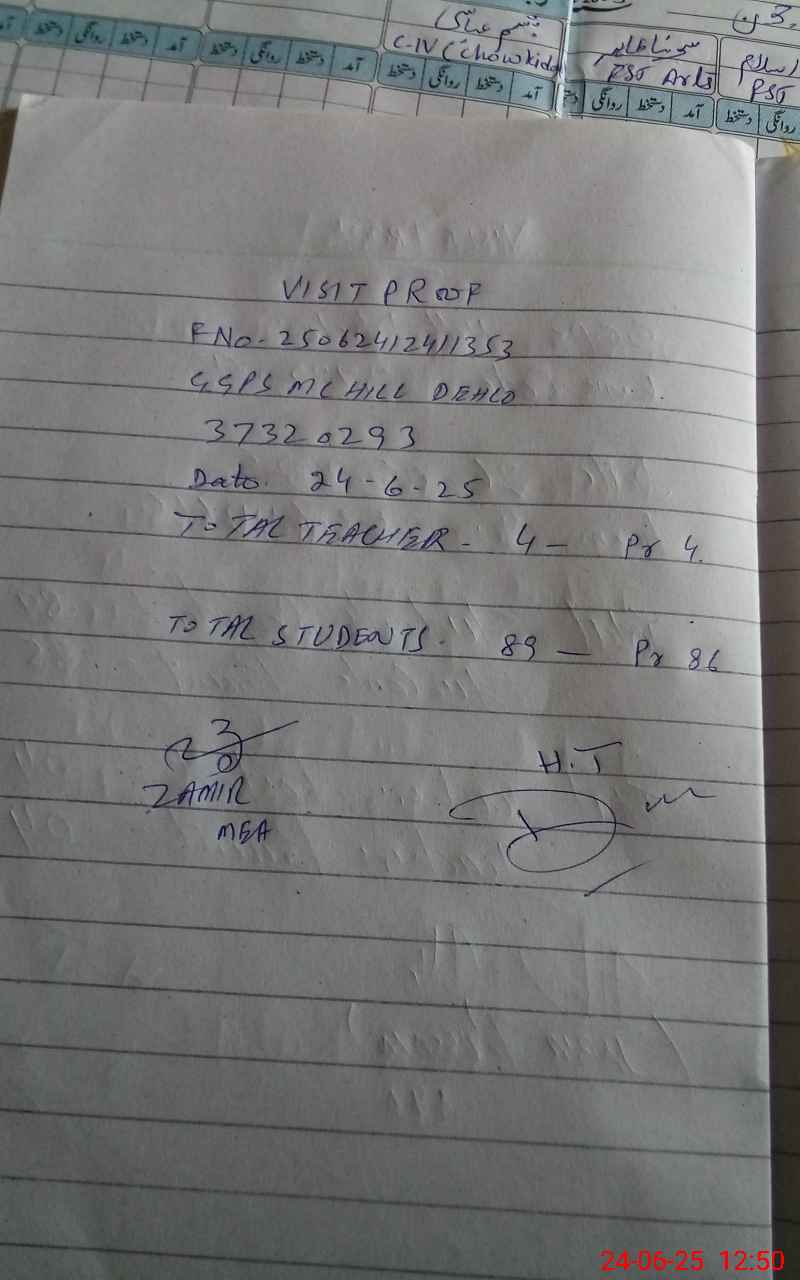 تبسم عباسی
C-IV (Chowkida
PST Arts
اسلام
PST
آمد دستخط روانگی دستخط آمد دستخط روانگی دستخط آمد دستخط روانگی دستخط آمد
آمد دستخط روانگی
روانگی دستخط
VISIT PROOF
FNo. 25062412411353
GGPS MCHILL DEHLO
37320293
Date. 24-6-25
TOTAL TEACHER - 4 - Pr 4.
TOTAL STUDENTS. 89 - Pr 86
H.T
ZAMIR
MEA
24-06-25 12:50